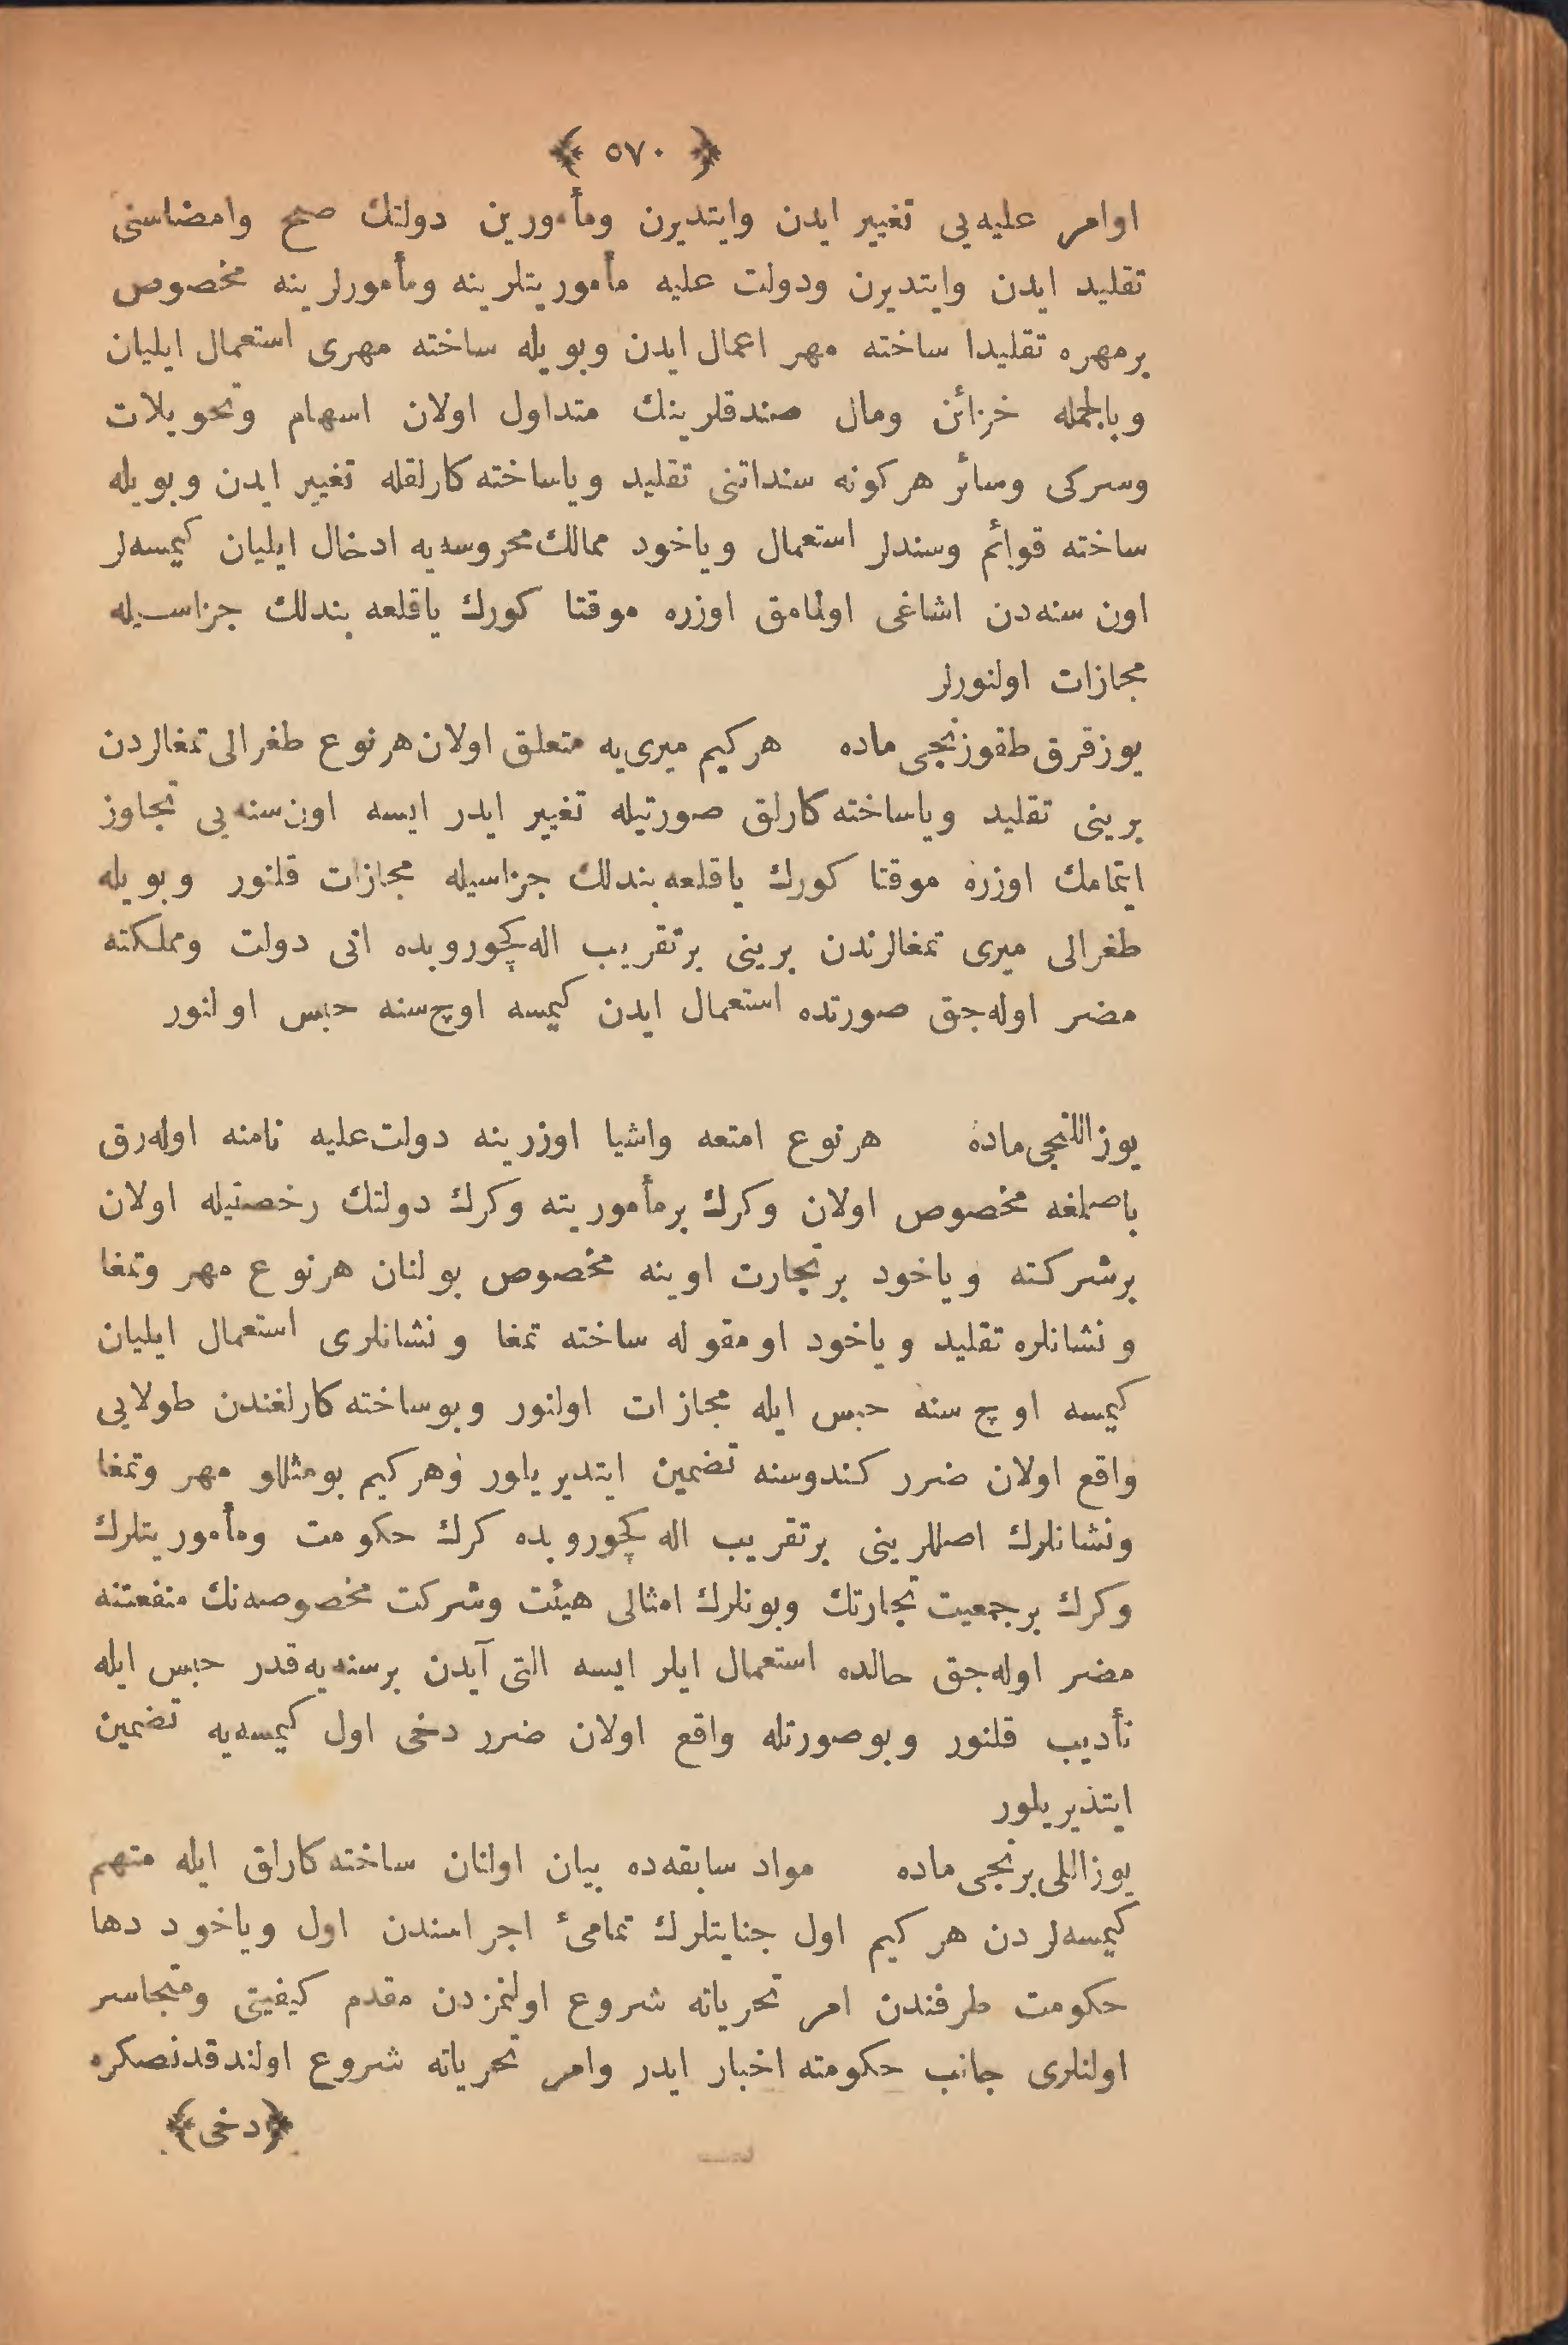 ﴿ ٥٧٠ ﴾
اوامر عليه‌يى تغيير ايدن وايتديرن ومأمورين دولتك صح وامضاسنى
تقليد ايدن وايتديرن ودولت عليه مأموريتلرينه ومأمورلرينه مخصوص
برمهره تقليدا ساخته مهر اعمال ايدن وبويله ساخته مهرى استعمال ايليان
وبالجمله خزائن ومال صندقلرينك متداول اولان اسهام وتحويلات
وسركى وسائر هركونه سنداتنى تقليد وياساخته‌كارلقله تغيير ايدن وبويله
ساخته قوائم وسندلر استعمال وياخود ممالك محروسه‌يه ادخال ايليان كيمسه‌لر
اون سنه‌دن اشاغى اولمامق اوزره موقتا كورك ياقلعه بندلك جزاسيله
مجازات اولنورلر
يوزقرق طقوزنجى ماده هركيم ميرى‌يه متعلق اولان هرنوع طغرالى تمغالردن
برينى تقليد وياساخته‌كارلق صورتيله تغيير ايدر ايسه اون سنه‌يى تجاوز
ايتمامك اوزره موقتا كورك ياقلعه‌بندلك جزاسيله مجازات قلنور وبويله
طغرالى ميرى تمغالرندن برينى برتقريب اله‌كچوروبده انى دولت ومملكته
مضر اوله‌جق صورتده استعمال ايدن كيمسه اوچ‌سنه حبس اولنور
يوزاللنجى ماده هرنوع امتعه واشيا اوزرينه دولت‌عليه نامنه اوله‌رق
باصلمغه مخصوص اولان وكرك برمأموريته وكرك دولتك رخصتيله اولان
برشركته وياخود برتجارت اوينه مخصوص بولنان هرنوع مهر وتمغا
ونشانلره تقليد وياخود اومقوله ساخته تمغا ونشانلرى استعمال ايليان
كيمسه اوچ سنه حبس ايله مجازات اولنور وبوساخته‌كارلغندن طولايى
واقع اولان ضرر كندوسنه تضمين ايتديريلور وهركيم بومثللو مهر وتمغا
ونشانلرك اصللرينى برتقريب اله كچوروبده كرك حكومت ومأموريتلرك
وكرك برجمعيت تجارتك وبونلرك امثالى هيئت وشركت مخصوصه‌نك منفعتنه
مضر اوله‌جق حالده استعمال ايلر ايسه التى آيدن برسنه‌يه‌قدر حبس ايله
تأديب قلنور وبوصورتله واقع اولان ضرر دخى اول كيمسه‌يه تضمين
ايتديريلور
يوزاللى‌برنجى ماده مواد سابقه‌ده بيان اولنان ساخته‌كارلق ايله متهم
كيمسه‌لردن هركيم اول جنايتلرك تمامئ اجراسندن اول وياخود دها
حكومت طرفندن امر تحرياته شروع اولنمزدن مقدم كيفيتى ومتجاسر
اولنلرى جانب حكومته اخبار ايدر وامر تحرياته شروع اولندقدنصكره
﴿دخى﴾